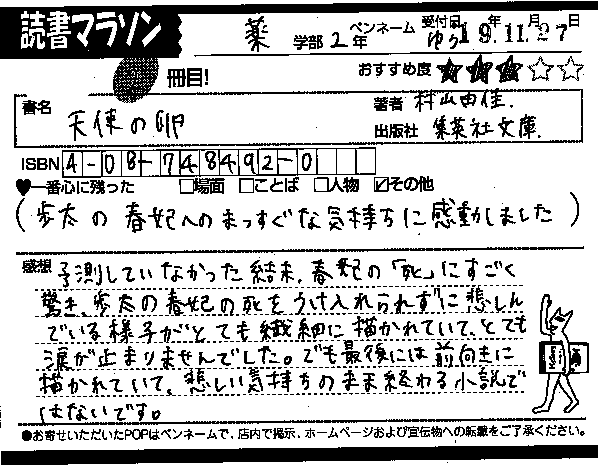 読書マラソン
薬 学部 2年 ペンネーム ゆう 受付日 19年11月27日
冊目! おすすめ度 ★★★☆☆
書名 天使の卵
著者 村山由佳.
出版社 集英社文庫.
ISBN 4-08-748492-0
♥一番心に残った □場面 □ことば □人物 ☑その他
(歩太の春妃へのまっすぐな気持ちに感動しました)
感想 予測していなかった結末、春妃の「死」にすごく
驚き、歩太の春妃の死をうけ入れられずに悲しん
でいる様子がとても繊細に描かれていて、とても
涙が止まりませんでした。でも最後には前向きに
描かれていて、悲しい気持ちのまま終わる小説で
はないです。
●お寄せいただいたPOPはペンネームで、店内で掲示、ホームページおよび宣伝物への転載をご了承ください。